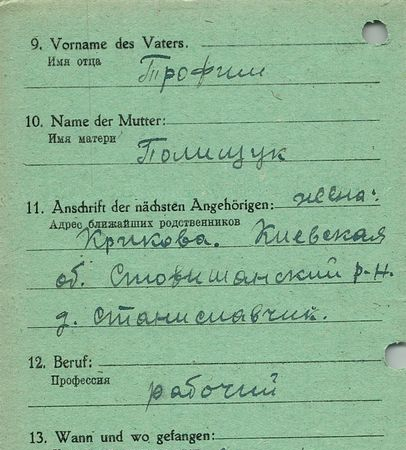 9. Vorname des Vaters.
Имя отца
Трофим
10. Name der Mutter:
Имя матери
Полищук
11. Anschrift der nächsten Angehörigen: жена:
Адрес ближайших родственников
Крикова. Киевская
об. Ставищанский р-н.
д. Станиславчик.
12. Beruf:
Профессия
рабочий
13. Wann und wo gefangen: